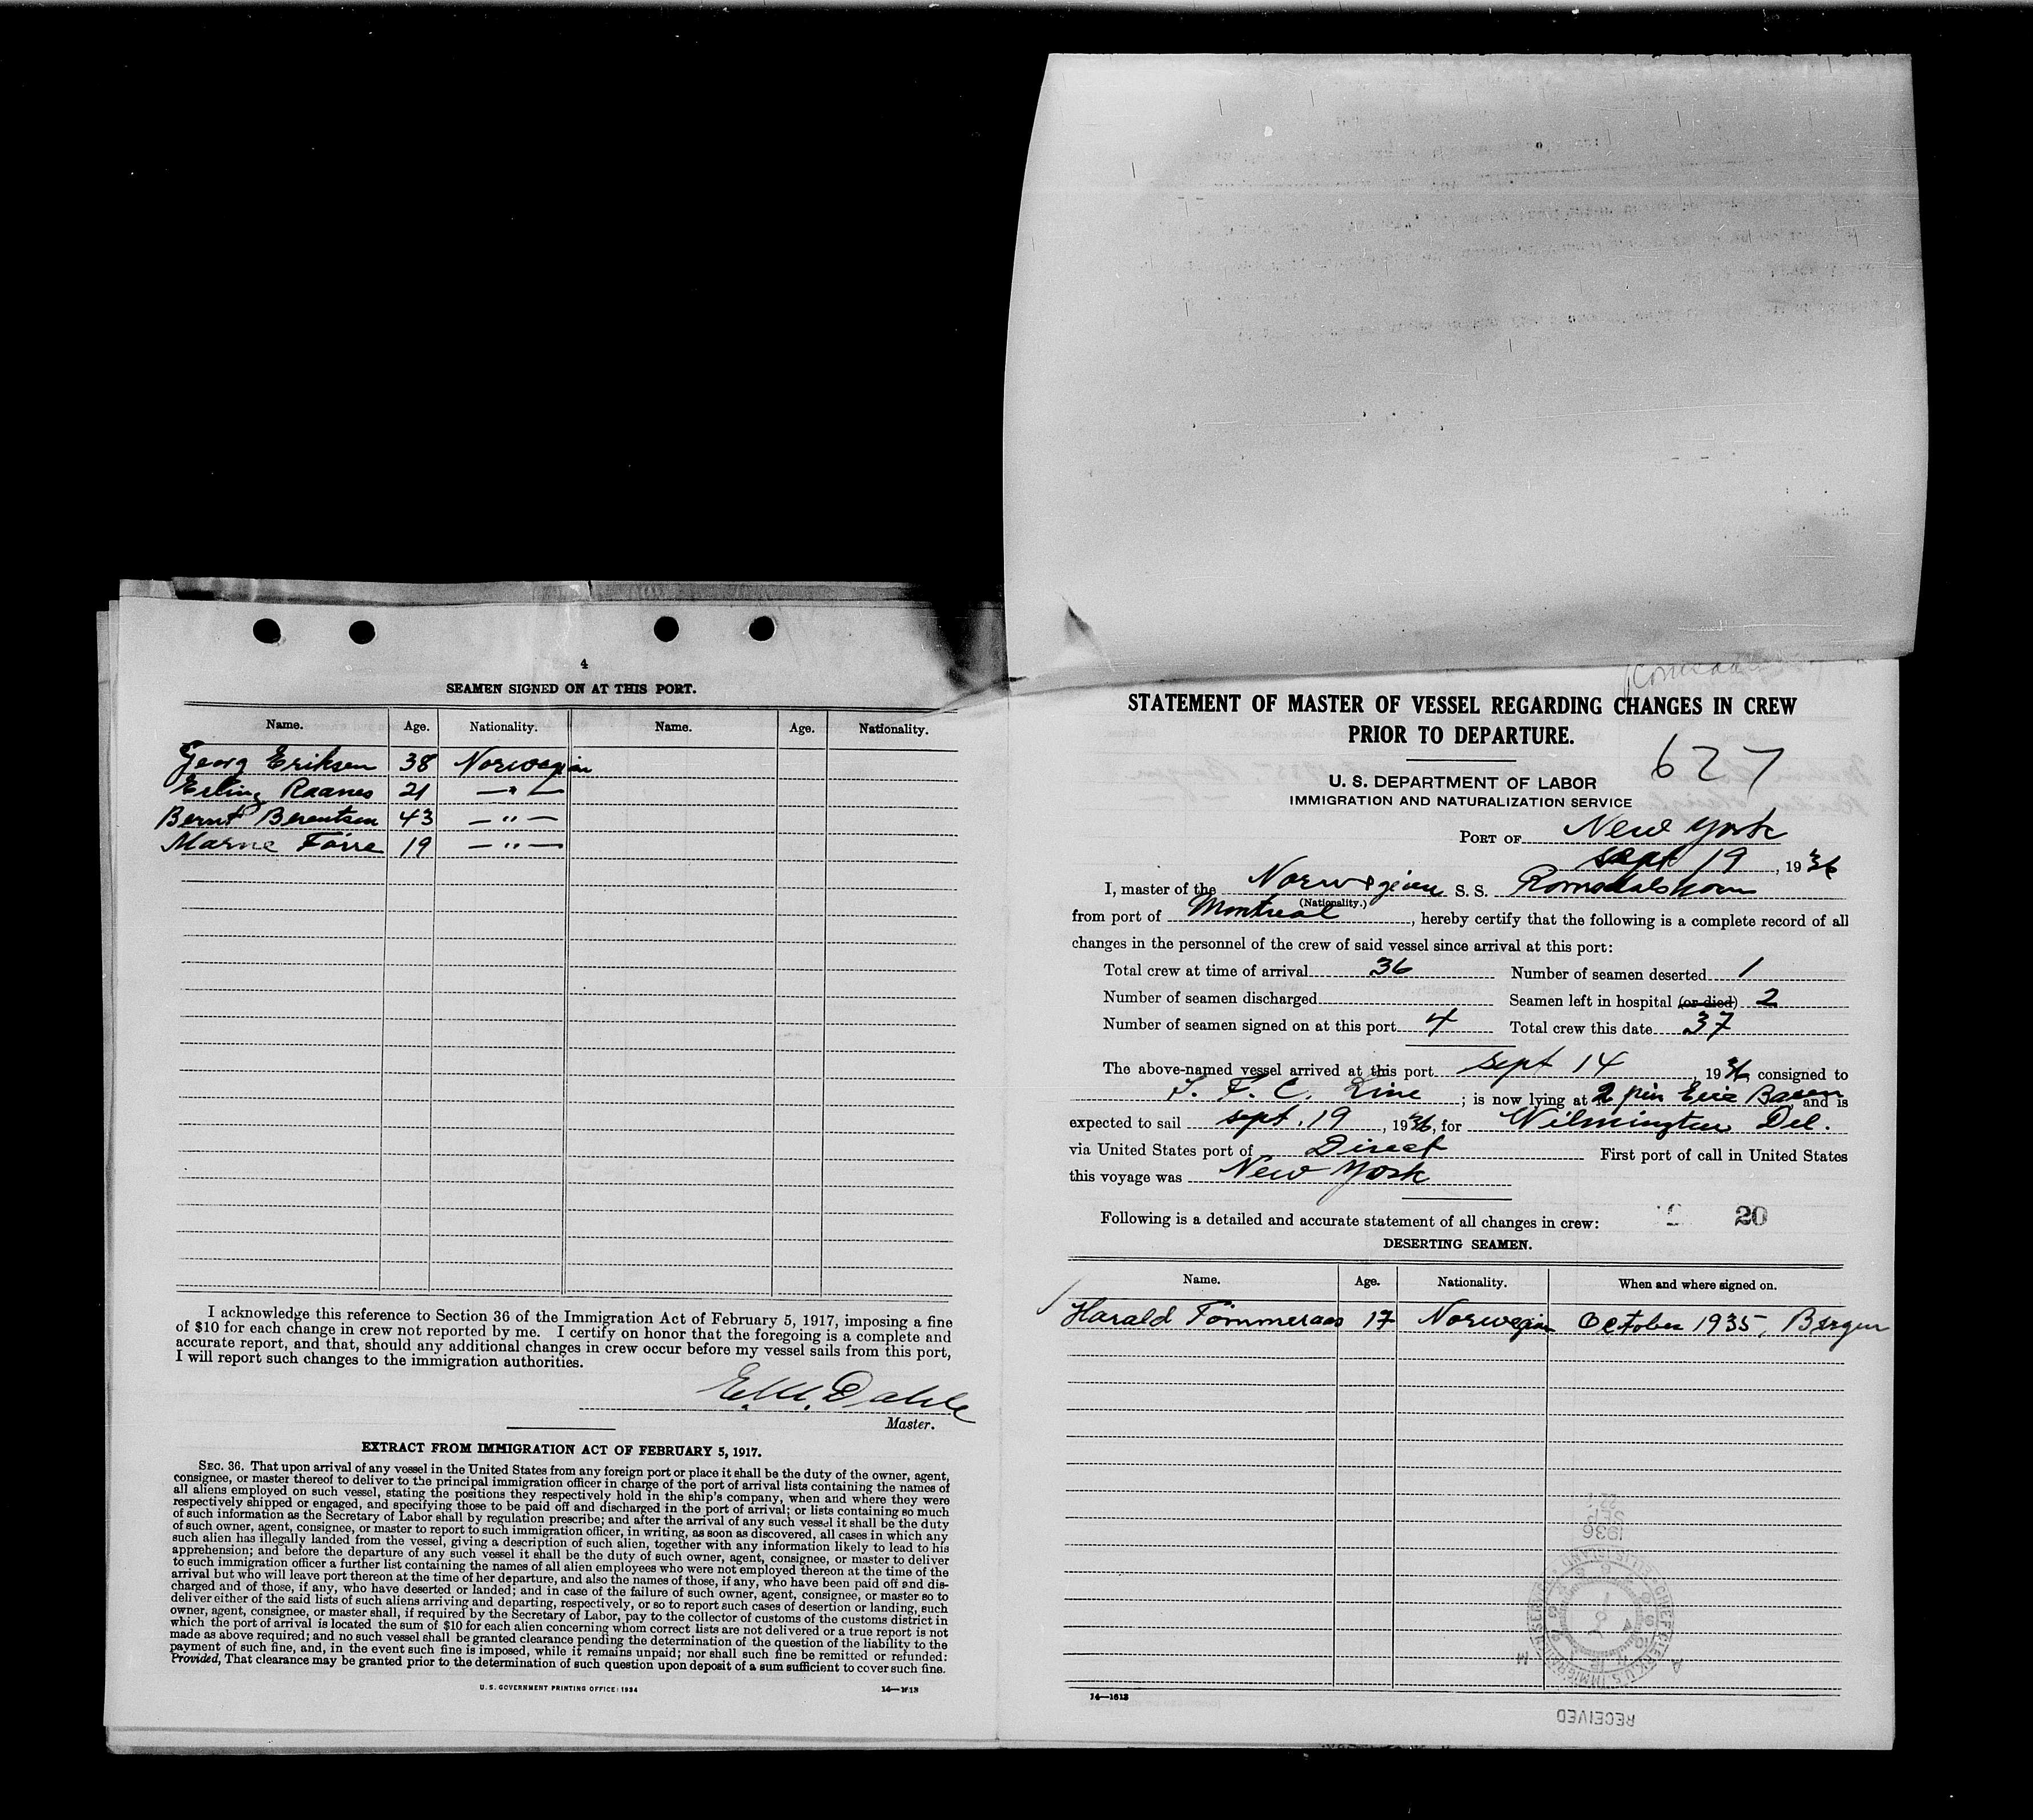 4
SEAMEN SIGNED ON AT THIS PORT.
Name. Age. Nationality. Name. Age. Nationality.
Georg Eriksen 38 Norwegian
Erling Raanes 21 — " —
Bernt Berentsen 43 — " —
Marne Förre 19 — " —
I acknowledge this reference to Section 36 of the Immigration Act of February 5, 1917, imposing a fine
of $10 for each change in crew not reported by me. I certify on honor that the foregoing is a complete and
accurate report, and that, should any additional changes in crew occur before my vessel sails from this port,
I will report such changes to the immigration authorities.
Dahle
Master.
EXTRACT FROM IMMIGRATION ACT OF FEBRUARY 5, 1917.
SEC. 36. That upon arrival of any vessel in the United States from any foreign port or place it shall be the duty of the owner, agent,
consignee, or master thereof to deliver to the principal immigration officer in charge of the port of arrival lists containing the names of
all aliens employed on such vessel, stating the positions they respectively hold in the ship's company, when and where they were
respectively shipped or engaged, and specifying those to be paid off and discharged in the port of arrival; or lists containing so much
of such information as the Secretary of Labor shall by regulation prescribe; and after the arrival of any such vessel it shall be the duty
of such owner, agent, consignee, or master to report to such immigration officer, in writing, as soon as discovered, all cases in which any
such alien has illegally landed from the vessel, giving a description of such alien, together with any information likely to lead to his
apprehension; and before the departure of any such vessel it shall be the duty of such owner, agent, consignee, or master to deliver
to such immigration officer a further list containing the names of all alien employees who were not employed thereon at the time of the
arrival but who will leave port thereon at the time of her departure, and also the names of those, if any, who have been paid off and dis-
charged and of those, if any, who have deserted or landed; and in case of the failure of such owner, agent, consignee, or master so to
deliver either of the said lists of such aliens arriving and departing, respectively, or so to report such cases of desertion or landing, such
owner, agent, consignee, or master shall, if required by the Secretary of Labor, pay to the collector of customs of the customs district in
which the port of arrival is located the sum of $10 for each alien concerning whom correct lists are not delivered or a true report is not
made as above required; and no such vessel shall be granted clearance pending the determination of the question of the liability to the
payment of such fine, and, in the event such fine is imposed, while it remains unpaid; nor shall such fine be remitted or refunded:
Provided, That clearance may be granted prior to the determination of such question upon deposit of a sum sufficient to cover such fine.
U. S. GOVERNMENT PRINTING OFFICE: 1934 14—1613
STATEMENT OF MASTER OF VESSEL REGARDING CHANGES IN CREW
PRIOR TO DEPARTURE.
627
U. S. DEPARTMENT OF LABOR
IMMIGRATION AND NATURALIZATION SERVICE
PORT OF New York
Sept 19, 1936
I, master of the Norwegian S. S. Romsdalshorn
(Nationality.)
from port of Montreal, hereby certify that the following is a complete record of all
changes in the personnel of the crew of said vessel since arrival at this port:
Total crew at time of arrival 36 Number of seamen deserted 1
Number of seamen discharged Seamen left in hospital (or died) 2
Number of seamen signed on at this port 4 Total crew this date 37
The above-named vessel arrived at this port sept 14, 1936, consigned to
I. F. C. Line; is now lying at 2 pier Erie Basen and is
expected to sail sept. 19, 1936, for Wilmington Del.
via United States port of Direct First port of call in United States
this voyage was New York
Following is a detailed and accurate statement of all changes in crew: 20
DESERTING SEAMEN.
Name. Age. Nationality. When and where signed on.
Harald Tömmeraas 17 Norwegian October 1935, Bergen
22
SEP
1936
14—1613
RECEIVED